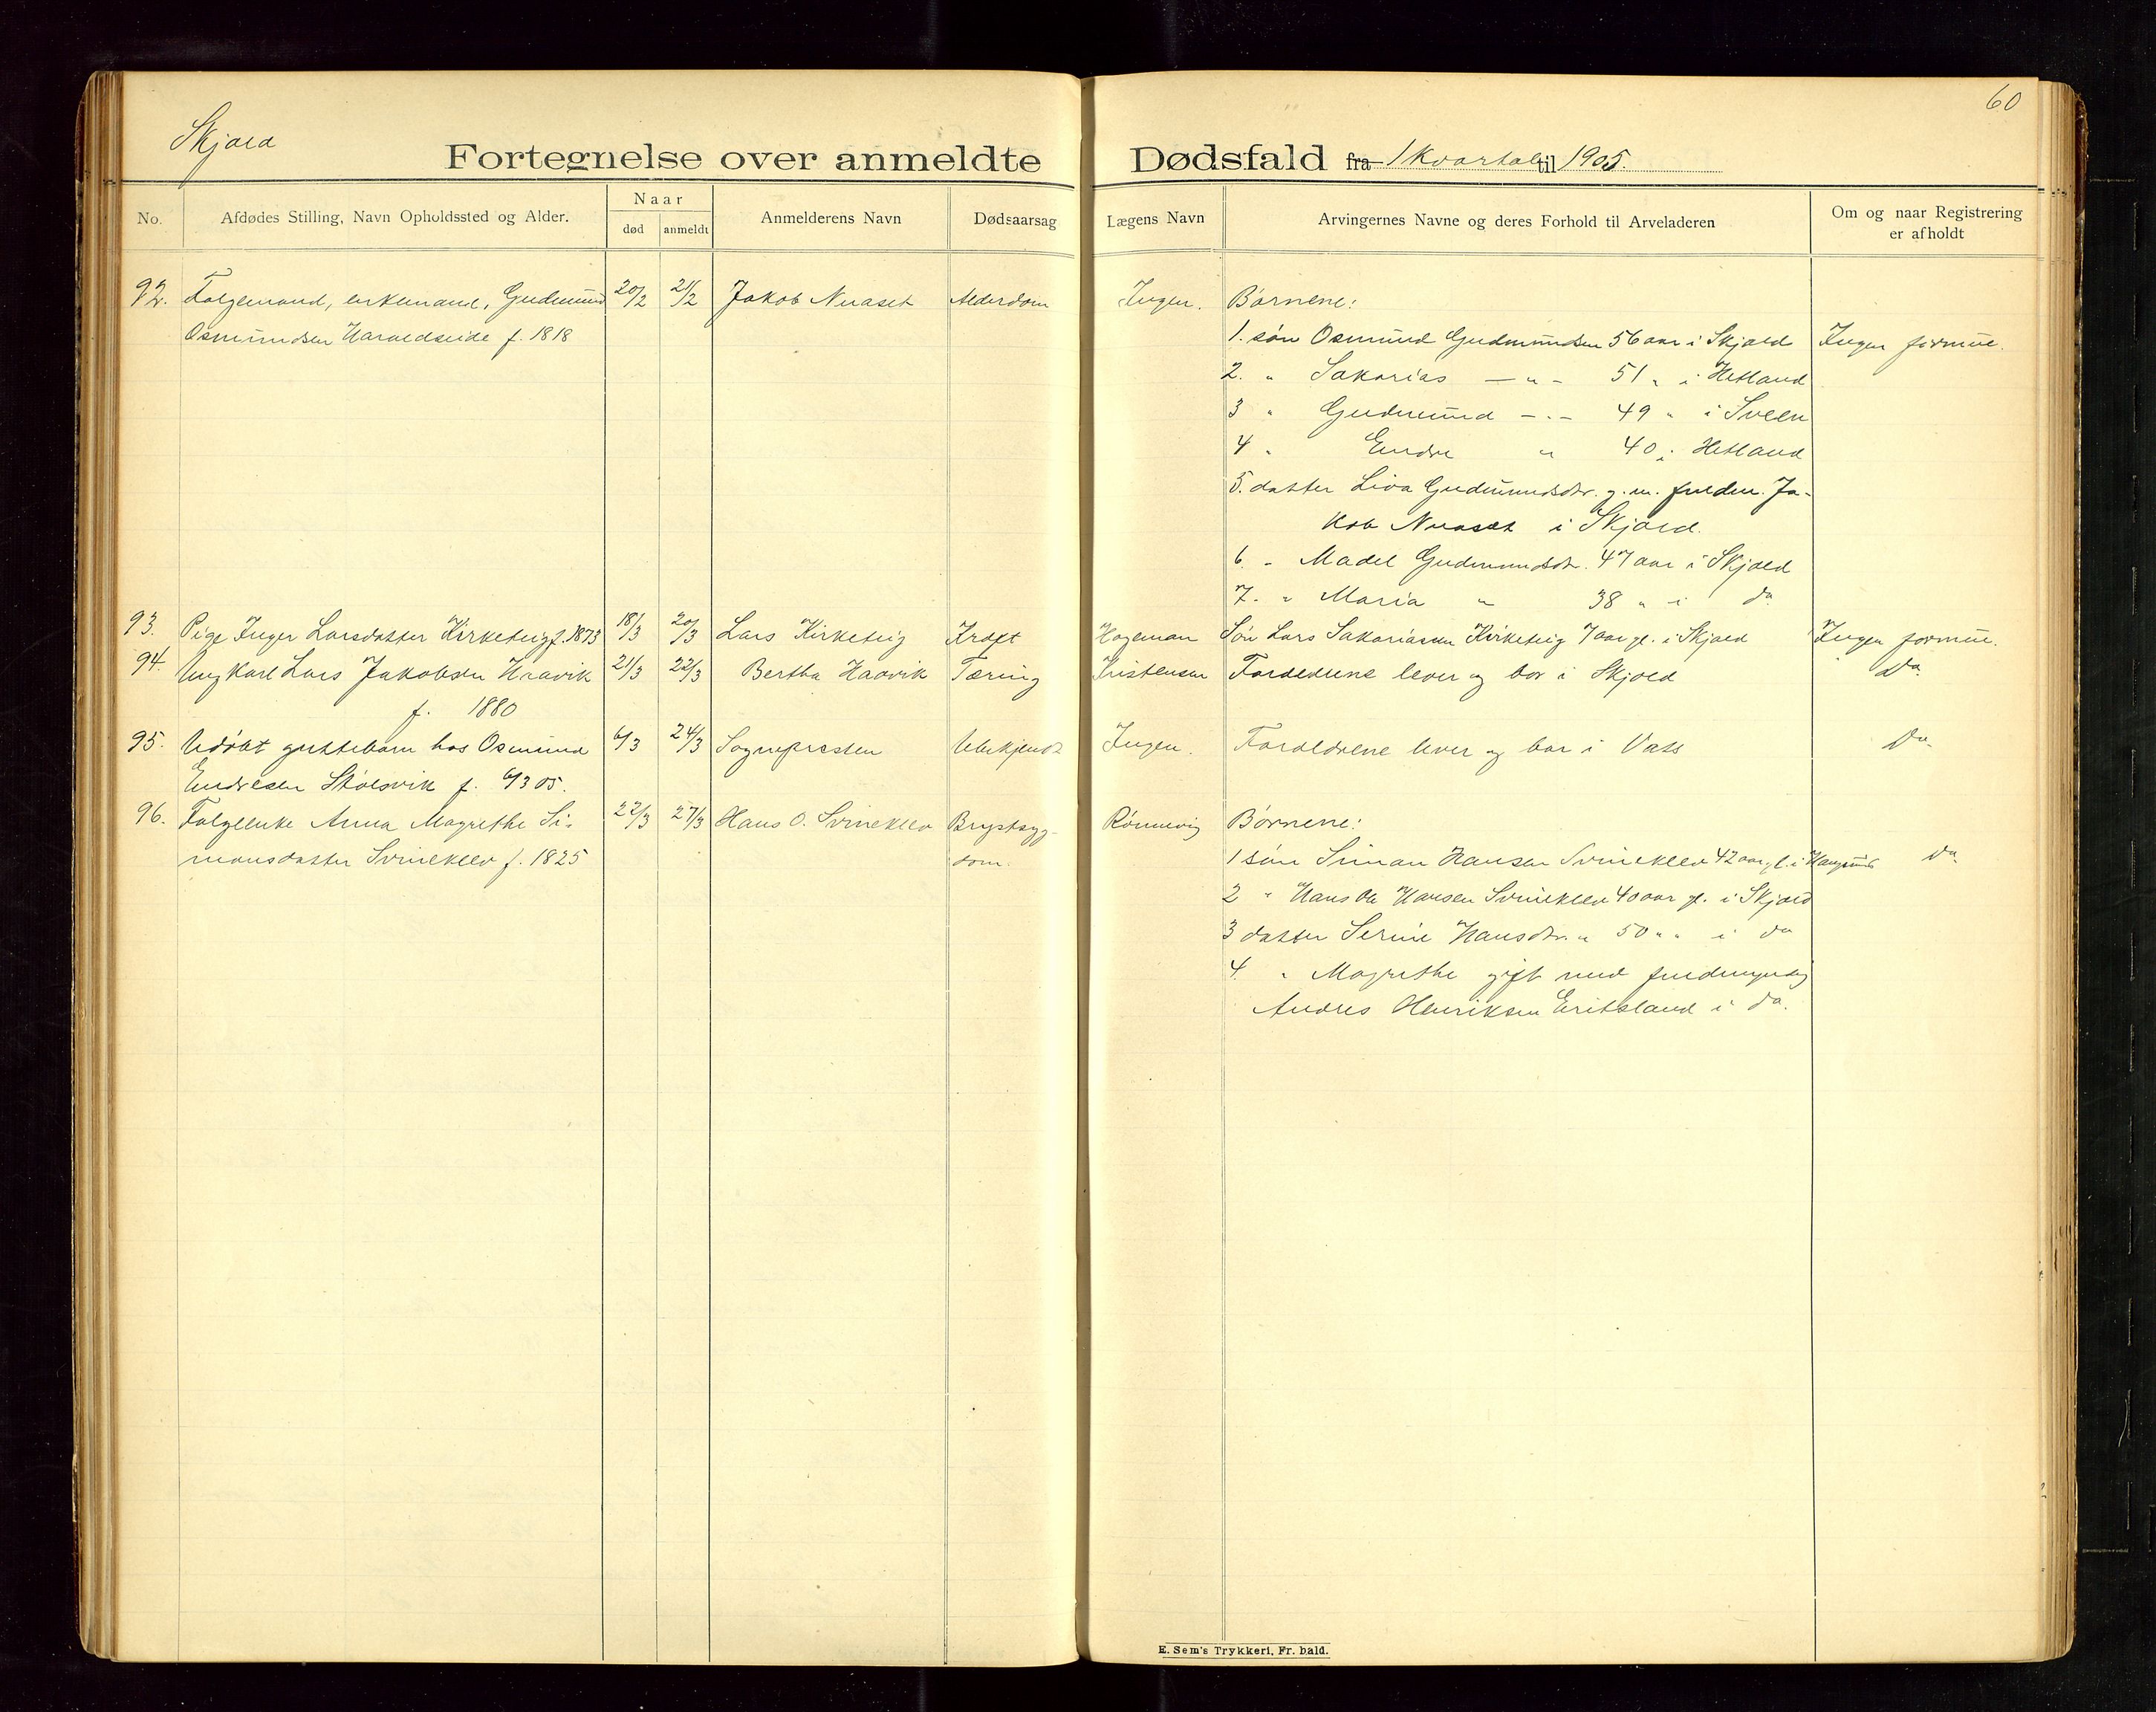 60
Skjold
Fortegnelse over anmeldte Dødsfald fra 1 Kvartal til 1905.
No.
Afdødes Stilling, Navn Opholdssted og Alder.
Naar
død
anmeldt
Anmelderens Navn
Dødsaarsag
Lægens Navn
Arvingernes Navne og deres Forhold til Arveladeren
Om og naar Registrering
er afholdt
92. Folgemand, enkemand, Gudmund 20/2 21/2 Jakob Nuaset Alderdom Ingen. Børnene:
Osmundsen Haraldseide f. 1818 1. søn Osmund Gudmundsen 56 aar i Skjold Ingen formue.
2. " Sakarias — " - 51 " i Hetland
3 " Gudmund - " - 49 " i Sveen
4 " Endre " 40 i Hetland
5. datter Liva Gudmundsdtr. g. m. fuldm. Ja-
kob Nuaset i Skjold.
6. " Madel Gudmundsdtr. 47 aar i Skjold
7. " Maria " 38 " i do
93. Pige Inger Larsdatter Kirketeig f. 1873 18/3 20/3 Lars Kirketeig Kræft Hageman Søn Lars Sakariassen Kirketeig 7 aar gl. i Skjold Ingen formue.
94. Ungkarl Lars Jakobsen Haavik 21/3 22/3 Bertha Haavik Tæring Kristensen Forældrene lever og bor i Skjold do.
f. 1880
95. Udøbt guttebarn hos Osmund 6/3 24/3 Sognepræsten Ubekjendt Ingen. Forældrene lever og bor i Vats do.
Endresen Stølsvik f. 6/3 05.
96. Folgeenke Anna Magrethe Si- 22/3 27/3 Hans O. Svineklev Brystsyg- Rønnevig Børnene:
monsdatter Svineklev f. 1825 dom. 1 søn Simon Hansen Svineklev 42 aar gl. i Haugesund do.
2 " Hans Ole Hansen Svineklev 40 aar gl. i Skjold
3 datter Serine Hansdtr. " 50 " " i do
4. " Magrethe gift med fuldmyndig
Andres Henriksen Eritsland i do.
E. Sem's Trykkeri, Fr. hald.